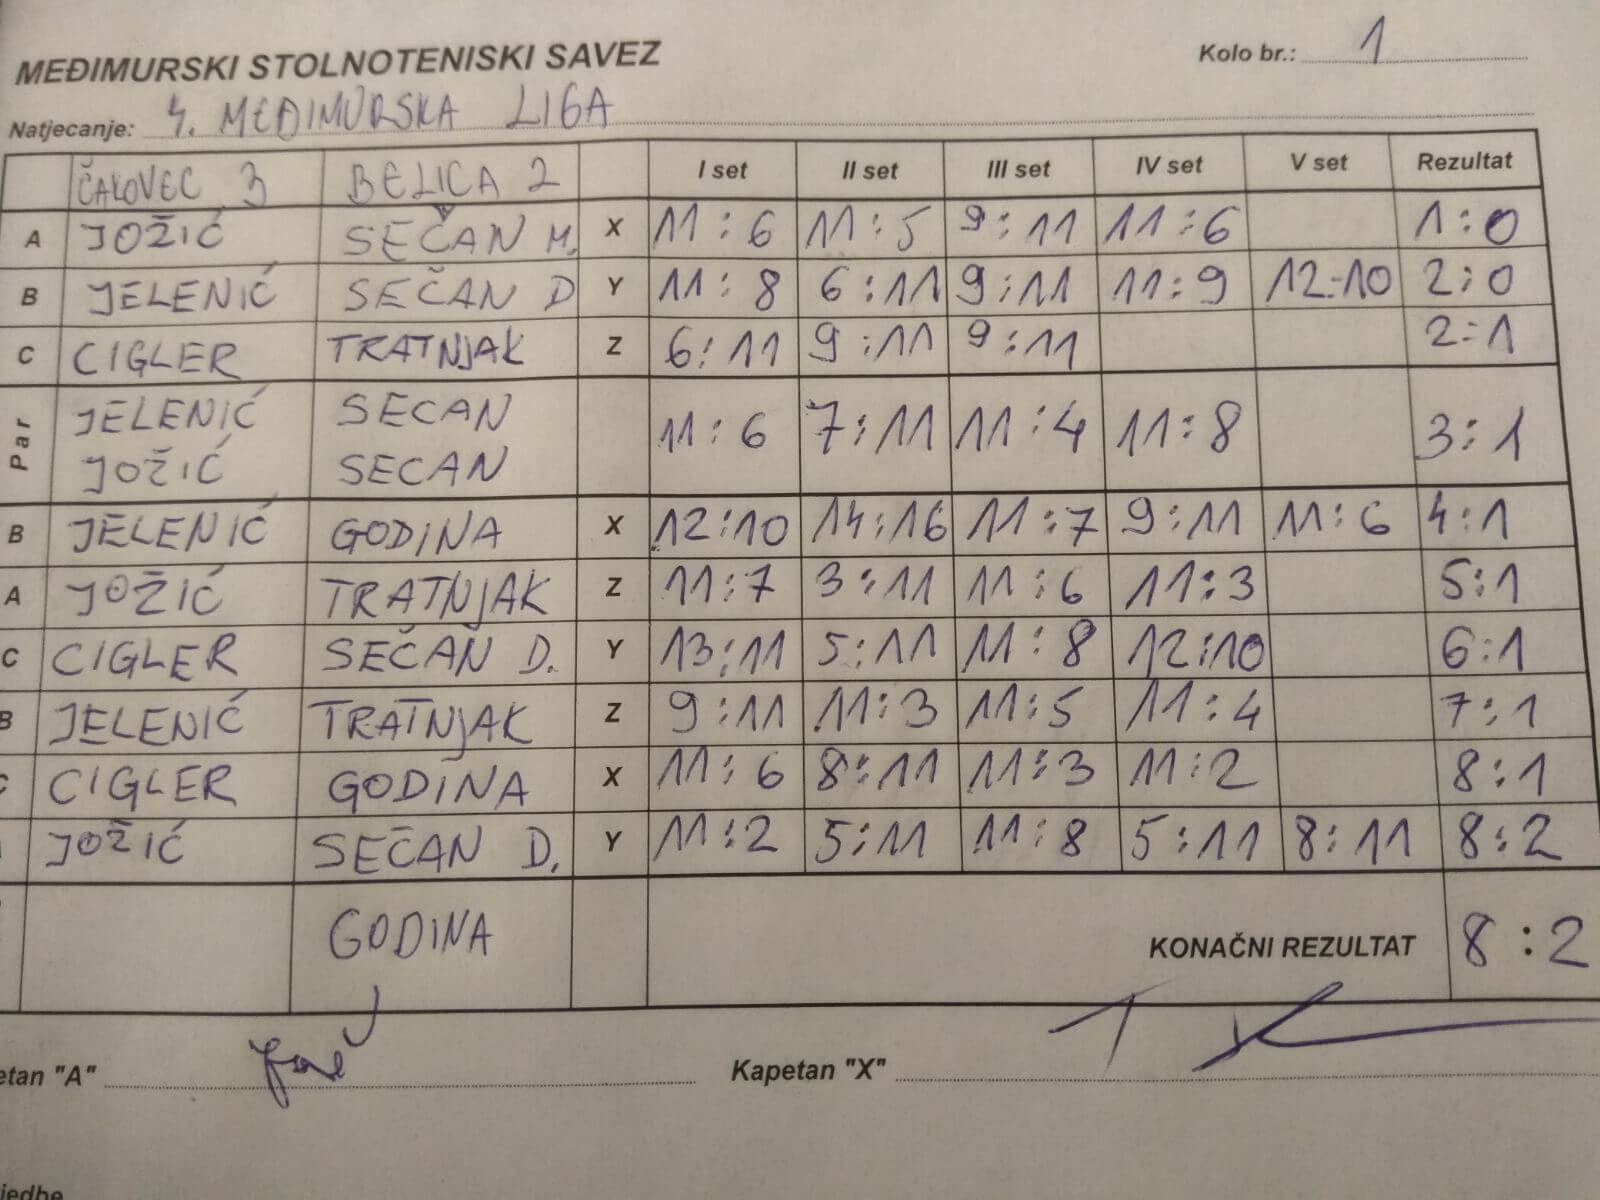 MEĐIMURSKI STOLNOTENISKI SAVEZ
Kolo br.: 1
Natjecanje: 4. MEĐIMURSKA LIGA
ČAKOVEC 3 BELICA 2 I set II set III set IV set V set Rezultat
A JOŽIĆ SEČAN M. X 11:6 11:5 9:11 11:6 1:0
B JELENIĆ SEČAN D Y 11:8 6:11 9:11 11:9 12-10 2:0
C CIGLER TRATNJAK Z 6:11 9:11 9:11 2:1
Par JELENIĆ SECAN 11:6 7:11 11:4 11:8 3:1
JOŽIĆ SECAN
B JELENIĆ GODINA X 12:10 14:16 11:7 9:11 11:6 4:1
A JOŽIĆ TRATNJAK Z 11:7 3:11 11:6 11:3 5:1
C CIGLER SEČAN D. Y 13:11 5:11 11:8 12:10 6:1
B JELENIĆ TRATNJAK Z 9:11 11:3 11:5 11:4 7:1
C CIGLER GODINA X 11:6 8:11 11:3 11:2 8:1
JOŽIĆ SEČAN D. Y 11:2 5:11 11:8 5:11 8:11 8:2
GODINA KONAČNI REZULTAT 8:2
etan "A" Kapetan "X"
jedbe